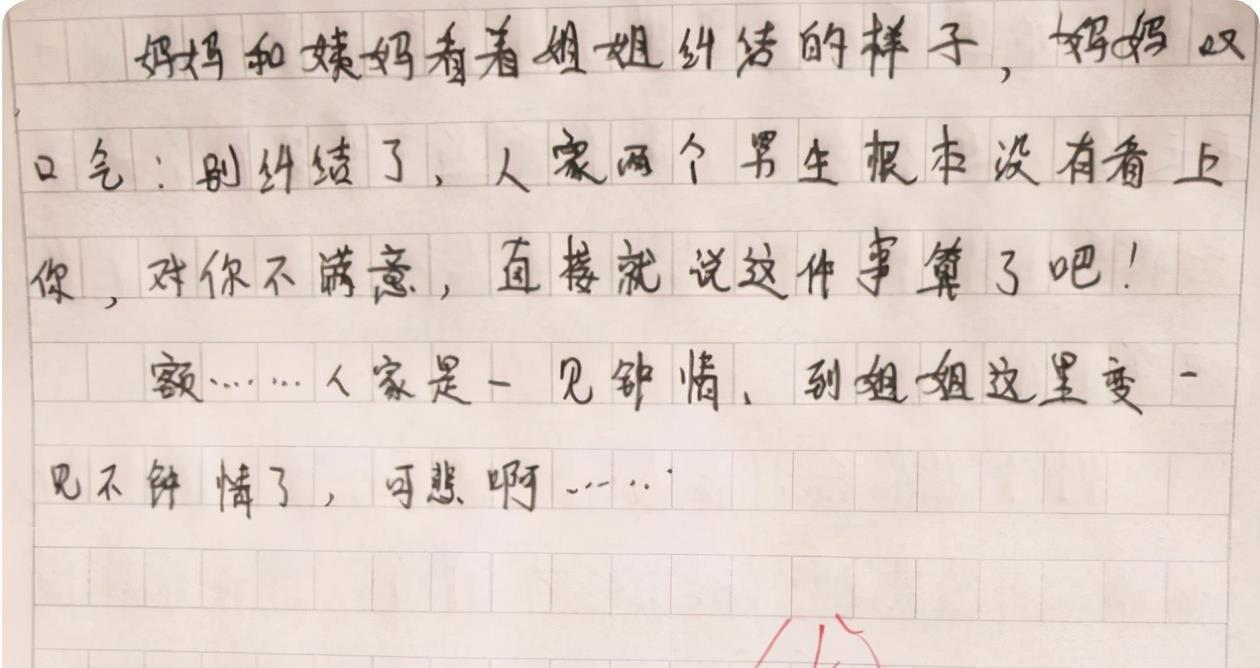 妈妈和姨妈看着姐姐纠结的样子，妈妈叹
口气：别纠结了，人家两个男生根本没有看上
你，对你不满意，直接就说这件事算了吧！
额……人家是一见钟情、到姐姐这里变一
见不钟情了，可悲啊……